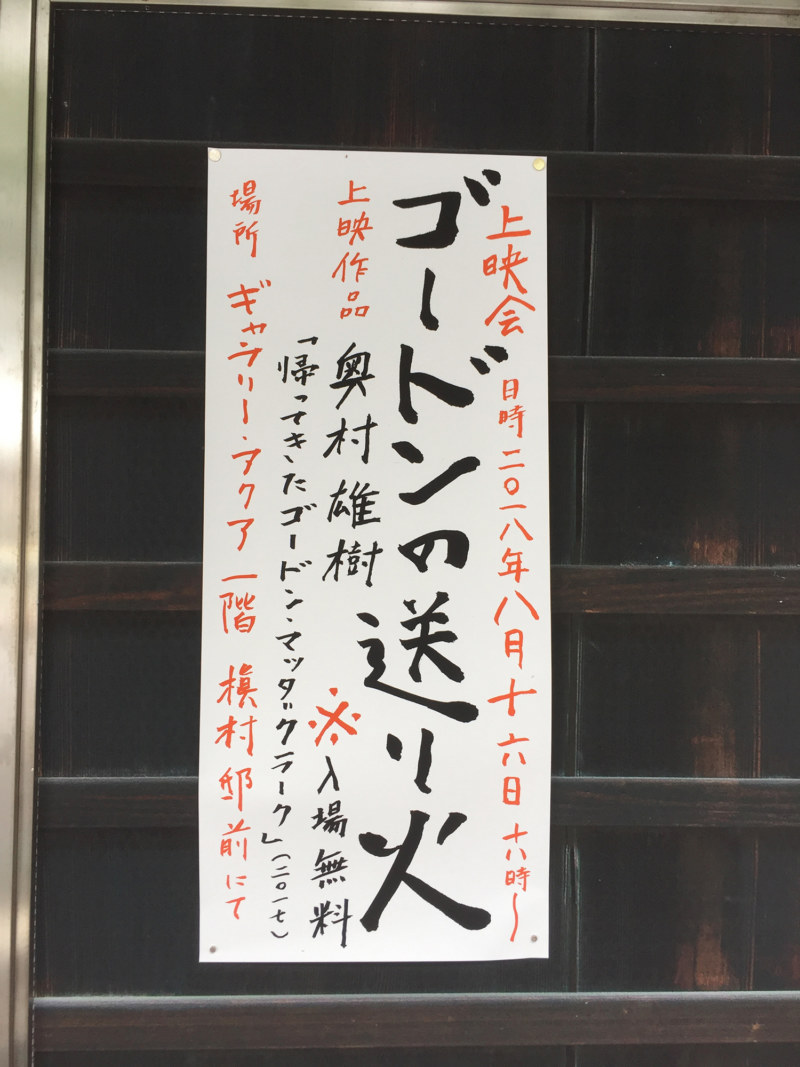 上映会 日時 二〇一八年八月十六日 十八時〜
ゴードンの送り火
上映作品 奥村雄樹 ※入場無料
「帰ってきたゴードン・マッタ＝クラーク」（二〇一七）
場所 ギャラリー・アクア 一階 槇村邸前にて